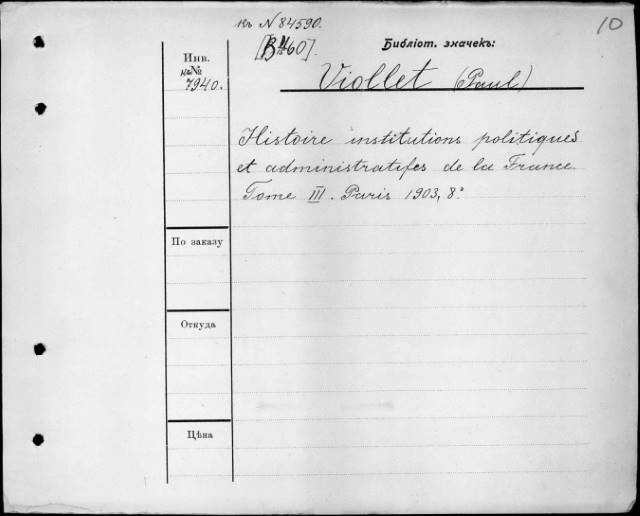 къ N 84590.
10
Библіот. значекъ:
Инв.
№
7940.
Viollet (Paul)
Histoire institutions politiques
et administratifes de la France.
Tome III. Paris 1903, 8°
По заказу
Откуда
Цѣна